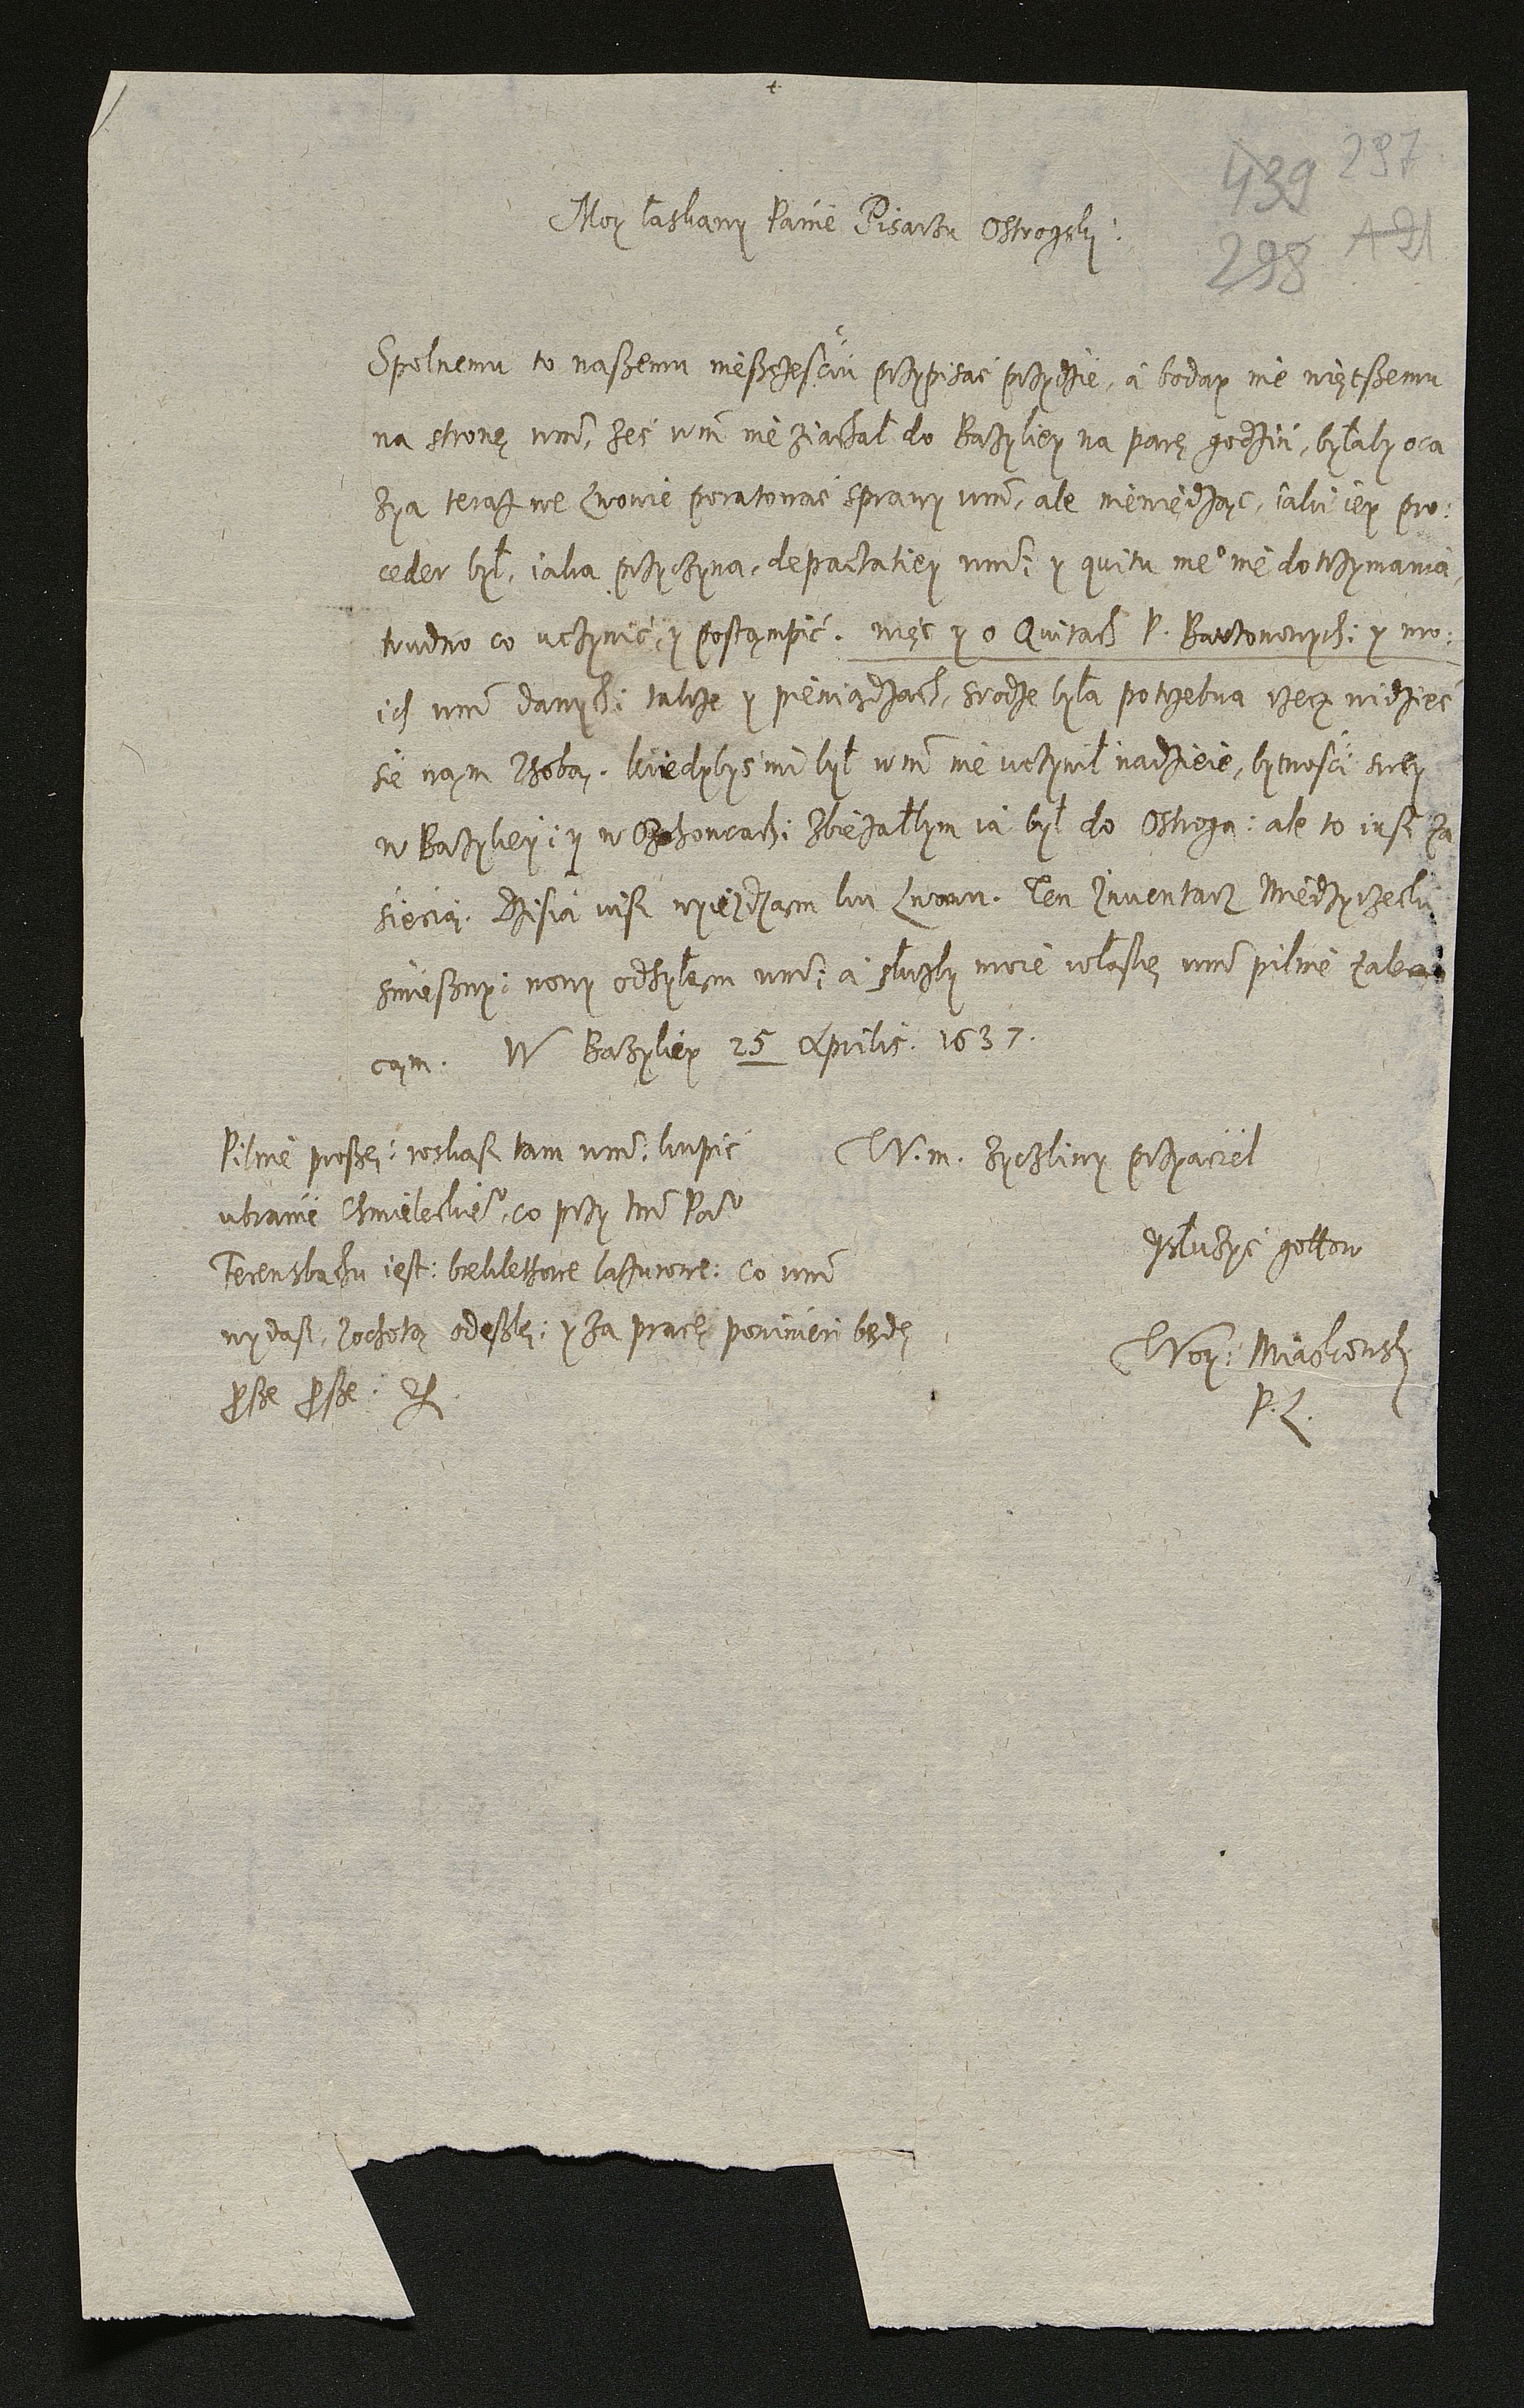 439 297
298
Moy łaskawy Panie Pisarzu Ostrogsky:
Spolnemu to naszemu nieszczęściu przypisać przydzie, a boday nie więtszemu
na stronę wmci, żeś wm nie ziachał do Bazyliey na parę godzin, byłaby oca
zya teraz we Lwowie poratować sprawy wmci, ale niewiedząc, iaki iey pro:
ceder był, iaka przyczyna, depactatiey wmci; y quitu meo nie dotrzymania,
trudno co uczynić, y postąmpić. więc y o Quitach P. Bartonowych; y mo:
ich wm danych; także y pieniądzach, srodze była potrzebna rzecz widzieć
sie nąm zsobą. Kiedybyś mi był wm nie uczynił nadzieie, bytności swey
w Bazyliey; y w zbieżałbym ia był do Ostroga: ale to iusz za
siecią. Dzisia iusz wyiezdzam ku Lwowu. Ten Inventarz Miedzyrzecki
smieszny: nowy odsyłam wmci; a służby moie właskę wmci pilnie zale
cąm. W Bazyliey 25 Aprilis. 1637.
Pilnie proszę: roskasz tam wmci; kupić
ubranie Chmieleckieo, co przy Panu
Terensbachu iest: lazurowe: co wm
wydasz, zochotą odeszlę; y za pracę powinien będę
prosze prosze.
W.m. życzliwy przyaciel
y służyć gottow
Woy: Miaskowsky
P. L.